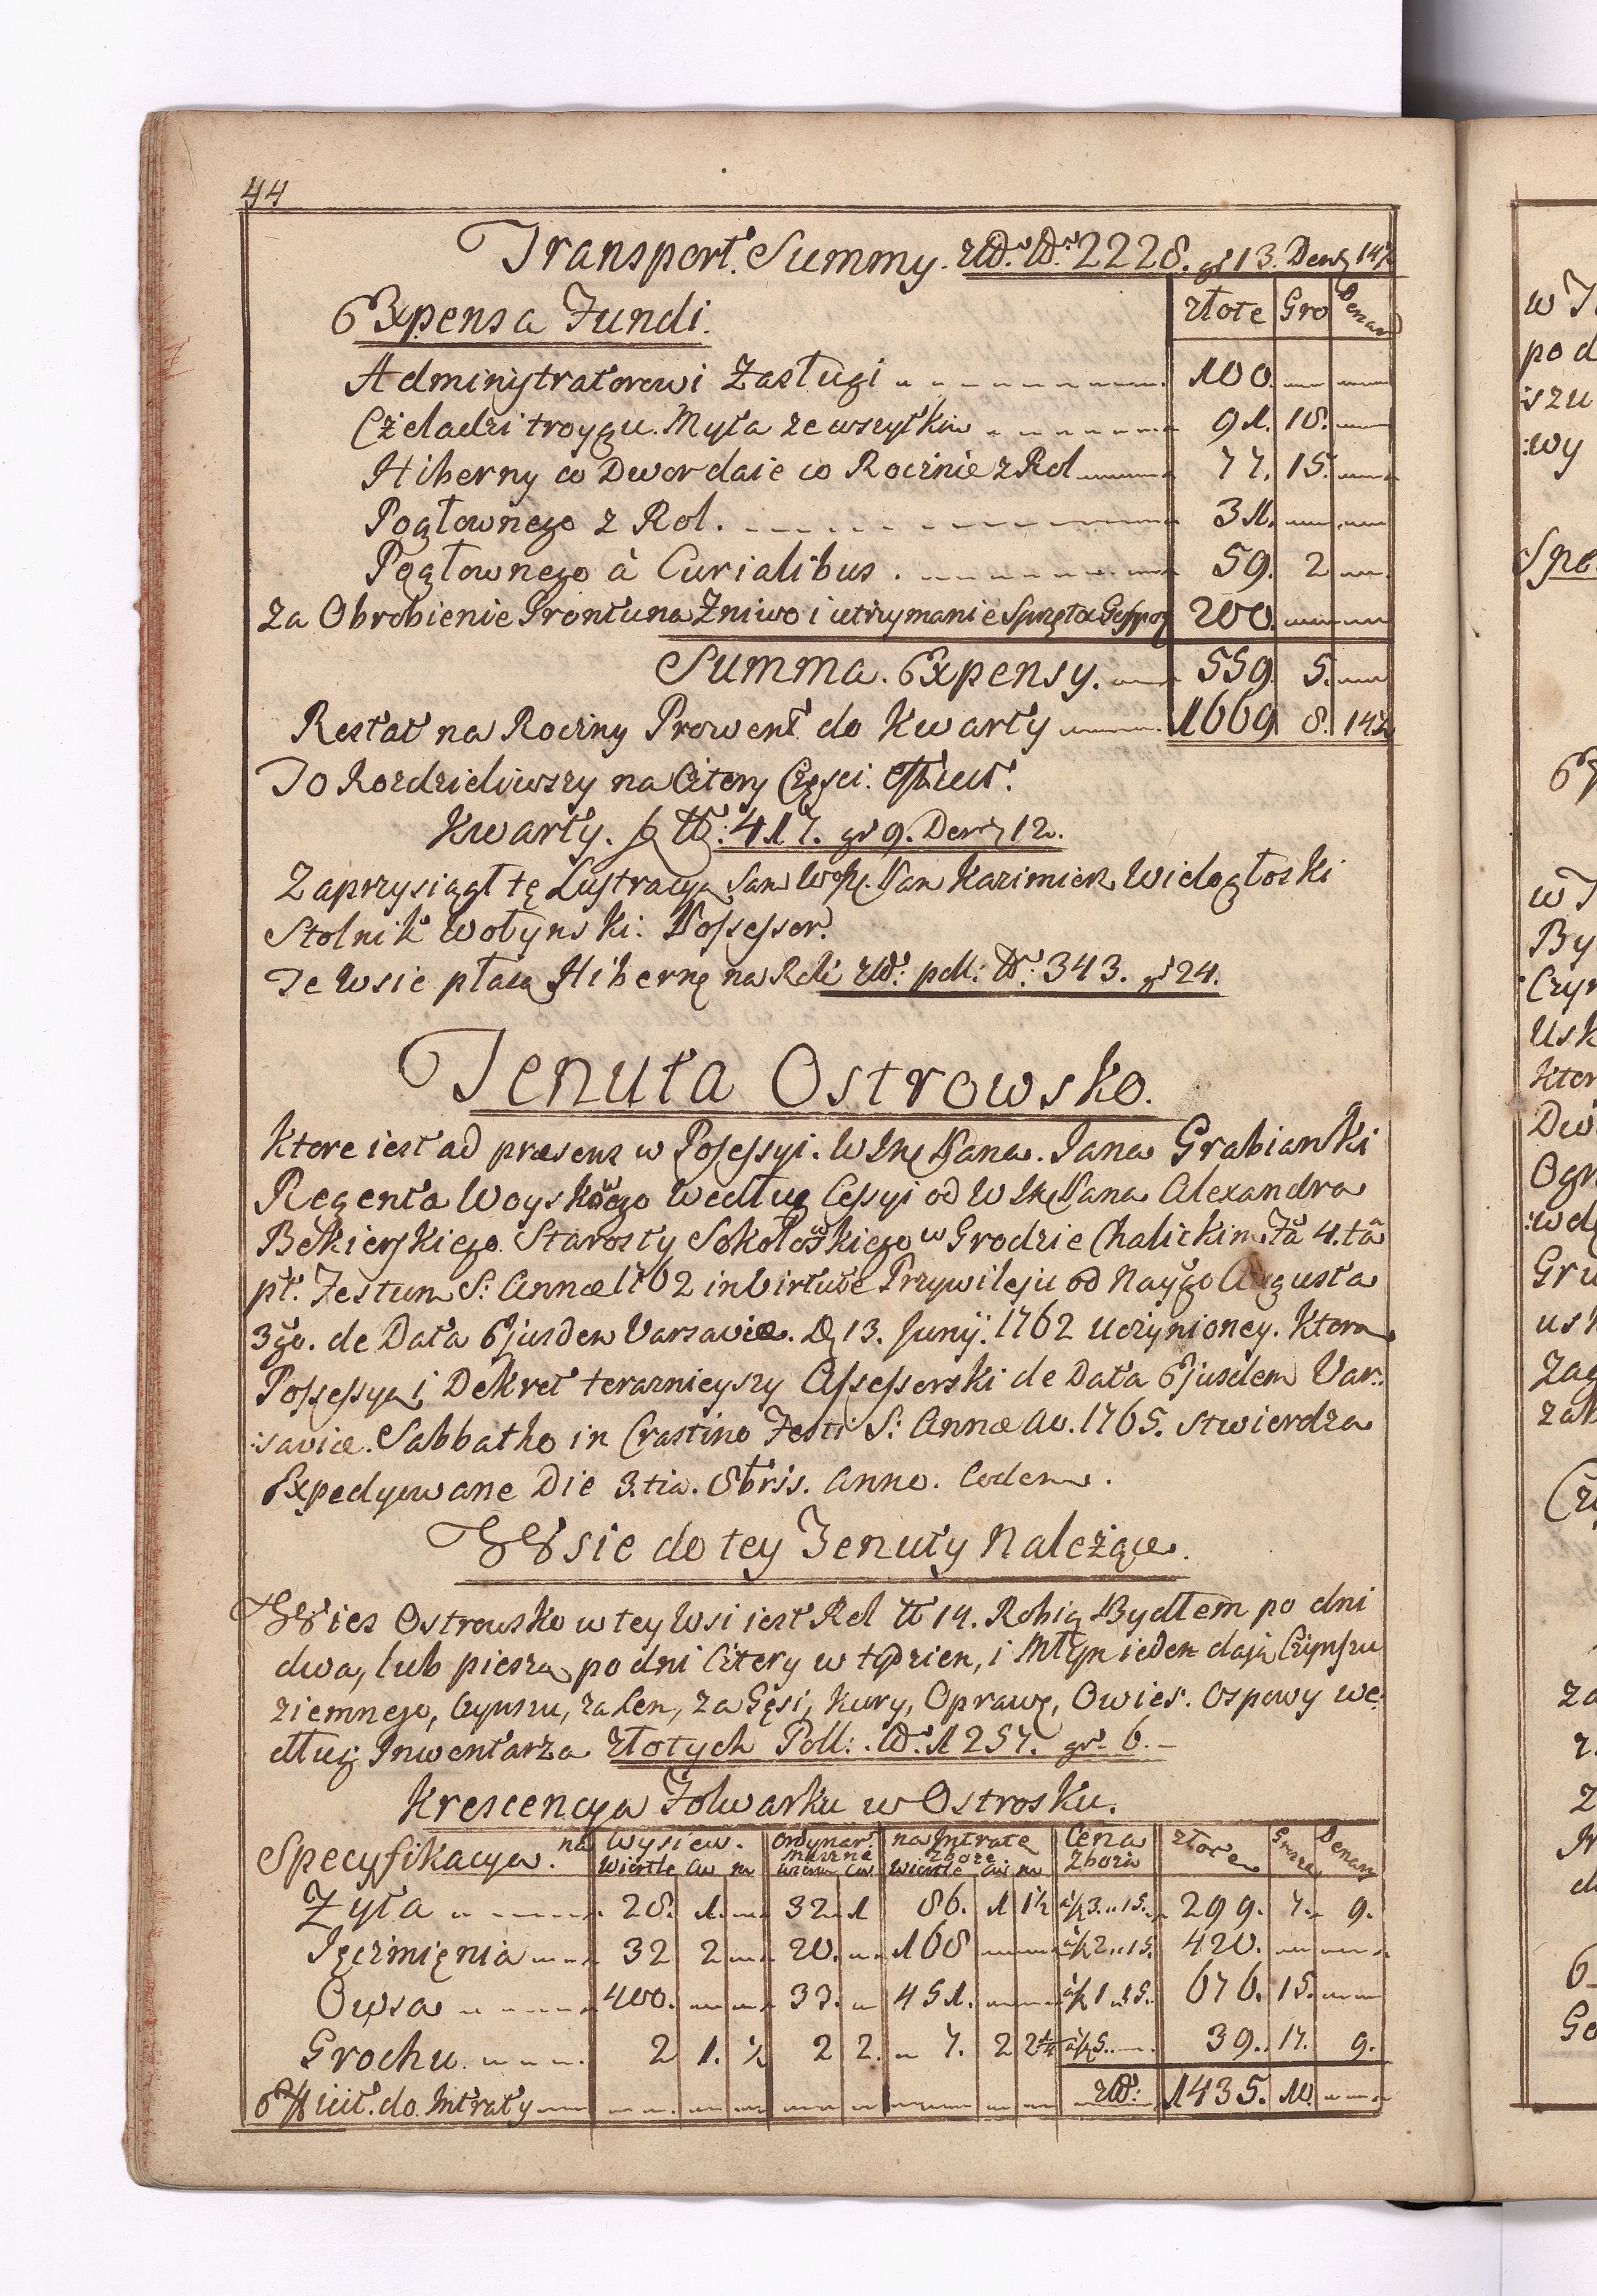 44
Transport. Summy. zł. N. 2228. gr 13. Den. 14½
Expensa Fundi. złote Gro Denar
Administratorowi Zasługi 100.
Czeladzi troygu. Myta ze wszytkim 91. 18.
Hiberny co Dwor daie co Rocznie z Rol 77. 15.
Pogłownego z Rol. 31.
Pogłownego à Curialibus. 59. 2
Za Obrobienie Grontu na Żniwo i utrzymanie Sprzętu Gospo 200.
Summa. Expensy. 559. 5.
Restat na Roczny Prowent do Kwarty 1669 8. 14½
To Rozdzieliwszy na Cztery Częsci. efficit.
Kwarty. f N: 417. gr 9. Den. 12.
Zaprzysiągł tę Lustracyą Sam Woże. Pan Kazimierz Wielogłoski
Stolnik Wołynski. Possessor.
Te Wsie płacą Hibernę na Rok zł: poll: N: 343. gr 24.
Tenuta Ostrowsko.
Ktore iest ad præsens w Possessyi. W Jmę Pana. Jana Grabianki
Regenta Woyskowego według Cessyi od W Jmę Pana Alexandra
Bekierskiego. Starosty Sokołowskiego w Grodzie Chalickim Fã 4. tã
pt. Festum S: Annæ 1762 in Virtute Przywileju od Nayygo Augusta
3go. de Data Ejusdem Varsaviæ. D. 13. Junÿ. 1762 uczynioney. Ktora
Possessyą i Dekret teraznieyszy Assessorski de Data Ejusdem Var:
:saviæ. Sabbatho in Crastino Festi S: Annæ Ao. 1765. stwierdza
Expedyowane Die 3. tia. 8bris. Anno. Eodem.
Wsie do tey Tenuty Należące.
Wies Ostrowsko w tey Wsi iest Rol N 14. Robią Bydłem po dni
dwa, lub pieszą po dni Cztery w tydzien, i Młyn ieden dają Czynszu
ziemnego, Czynszu, za Len, za Gęsi, Kury, Oprawę, Owies. Ospowy we:
dług Inwentarza złotych Poll: N: 1257. gr. 6.
Krescencya Folwarku w Ostrosku.
Specyfikacya. na Wysiew. Ordynar. na Intratę Cena złote Grosze Denary
Wiertle Ćw na Wiertle Ćw zboże Wiertle Ćw na Zboża
Żyta 28. 1. 32 1 86. 1 1½ à ½ 3. 15. 299. 7. 9.
Jęczmięnia 32 2 20. 168 à ½ 2. 15. 420.
Owsa 400. 33. 451. à ½ 1. 15. 676. 15.
Grochu. 2 1. ½ 2 2. 7. 2 2¼ à ½ 5. 39. 17. 9.
Efficit. do Intraty zł: 1435. 10.